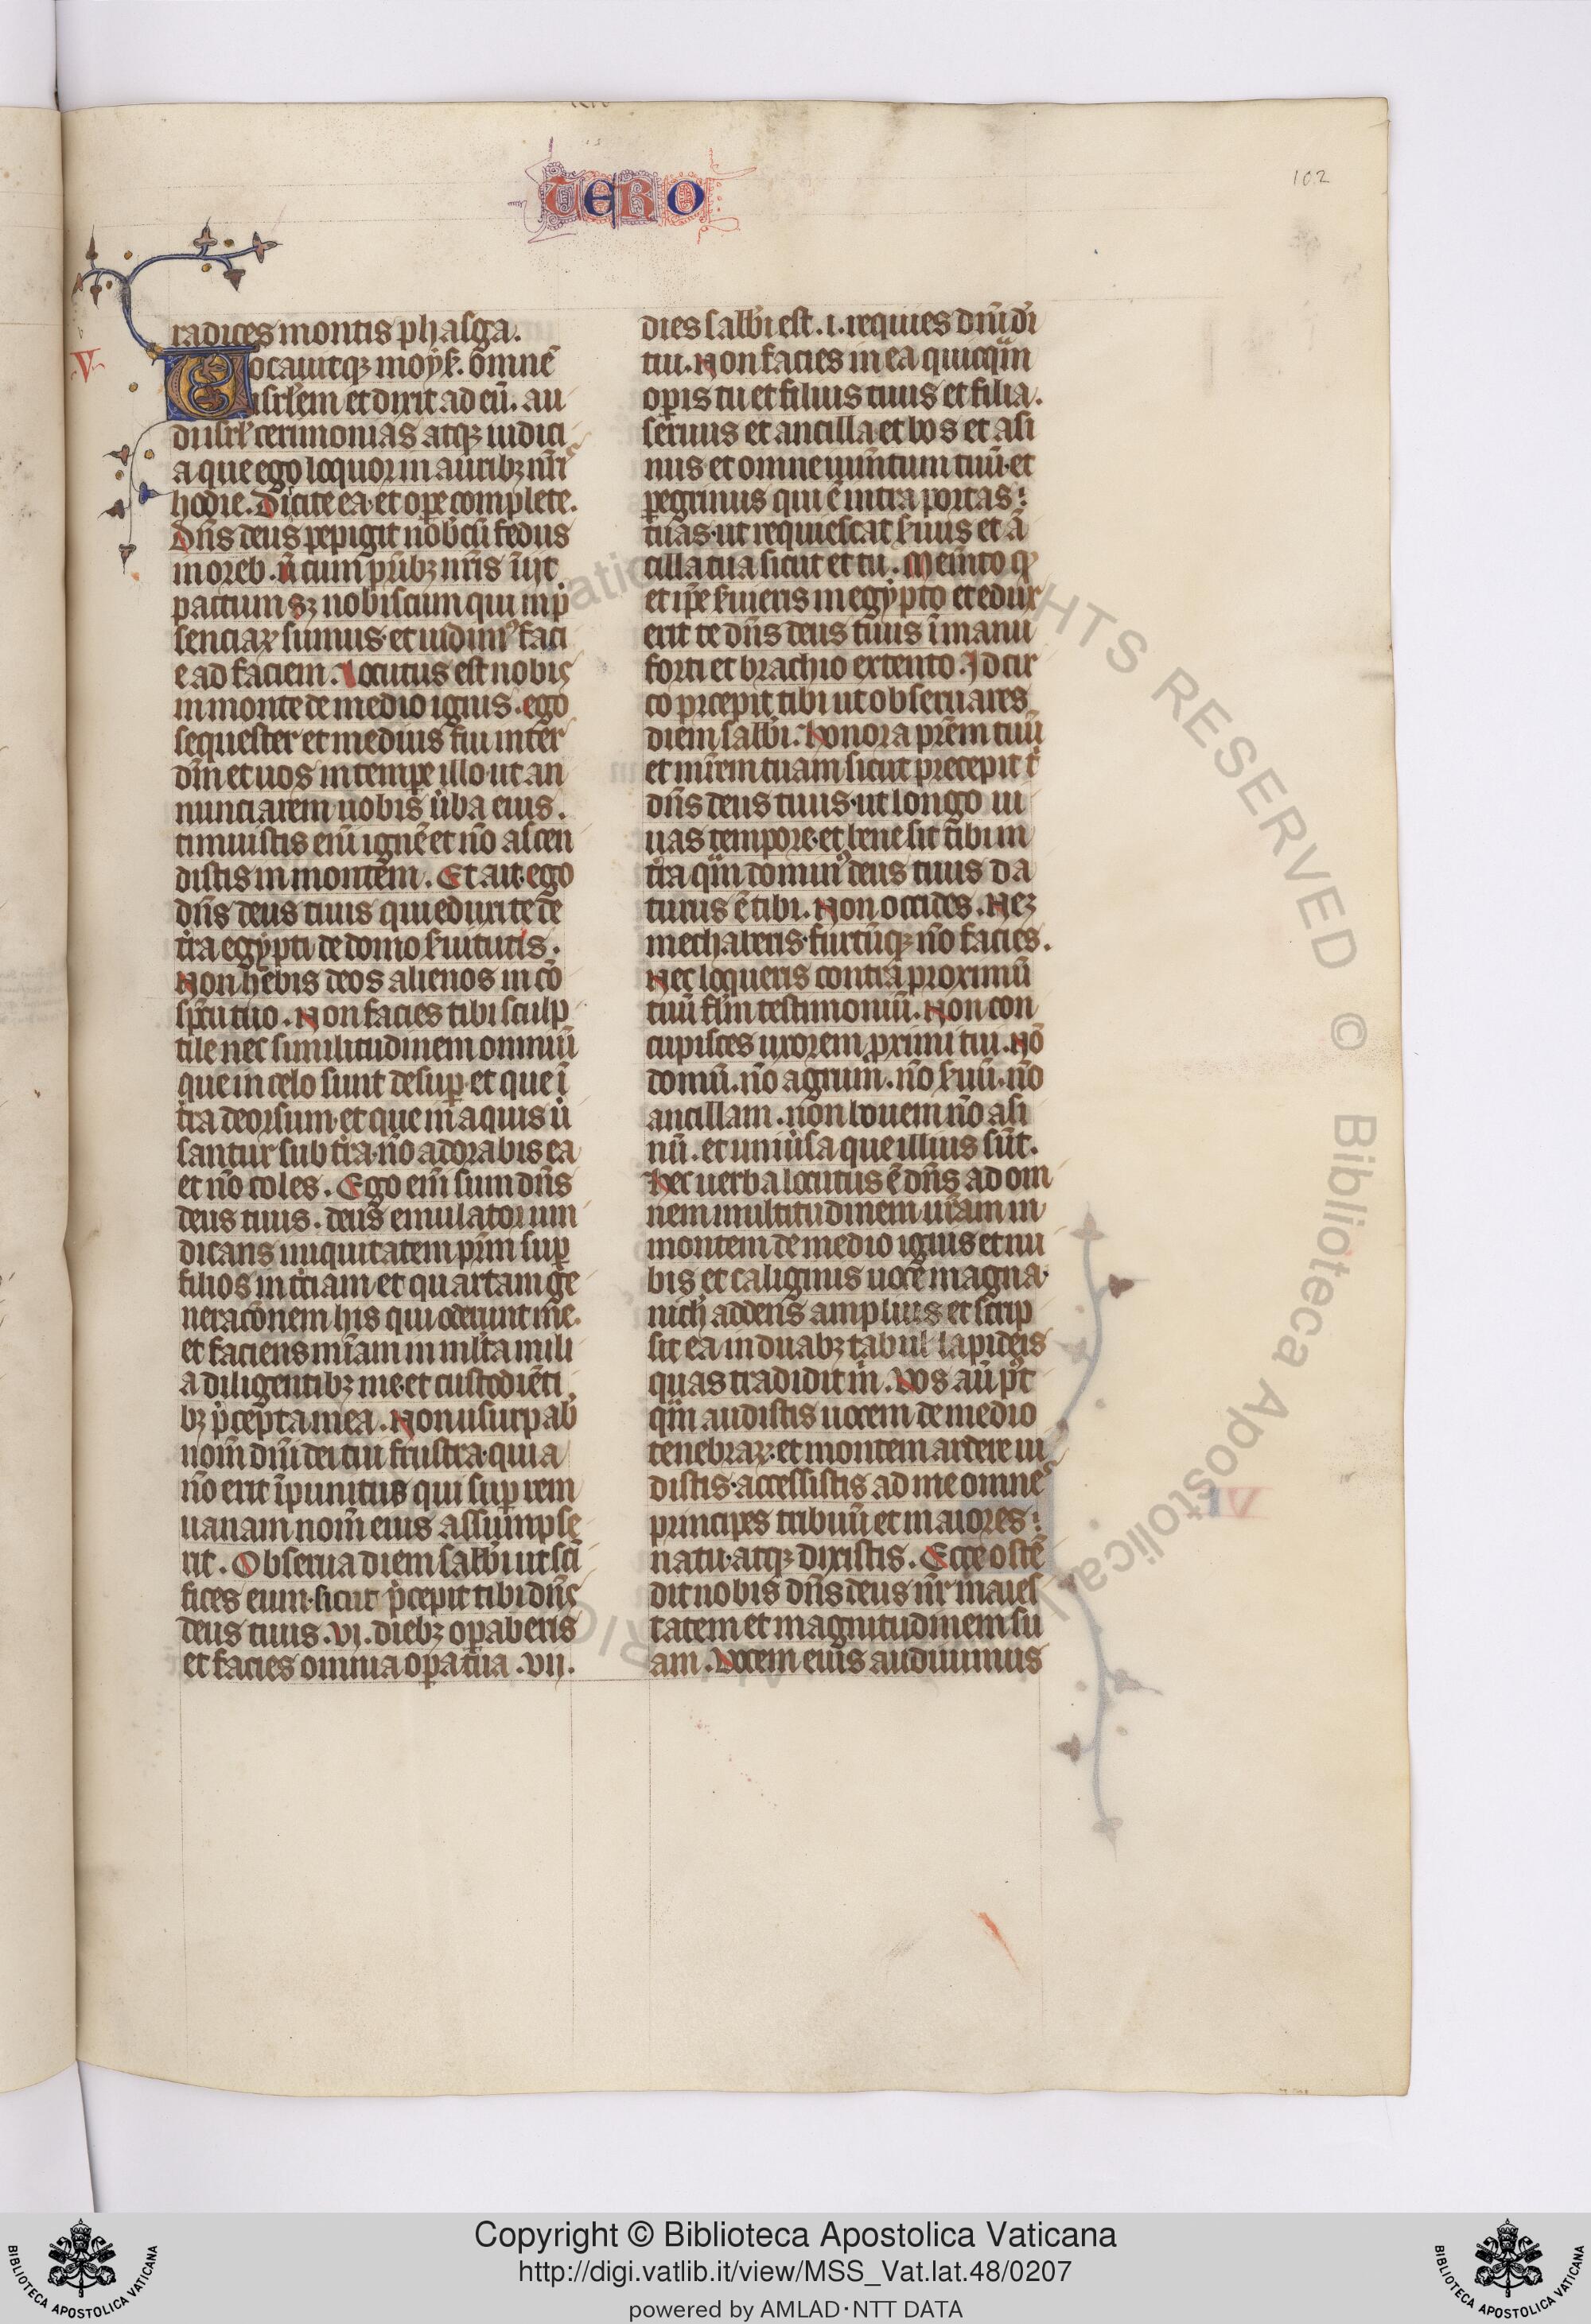 TERO
102
V
radices montis phasga.
Vocauitq; moys̃. õmnẽ
isrl̃em et dixit ad eũ. au
di isrl̃ cerimonias atq; iudici
a que ego loquor in aurib; nr̃is
hodie. Dicite ea et oꝑe complete.
Dñs deus pepigit nob̃cũ fedus
in oreb. ñ cum pr̃ib; nr̃is iniit
pactum s; nobiscum qui in p̃
senciaꝝ sumus et uidim⁹ faci
e ad faciem. Locutus est nobis
in monte de medio ignis. ego
sequester et medius fui inter
dñm et uos in tempe illo ut an
nunciarem uobis ũba eius.
timuistis eni ignẽ et nõ ascen
distis in montem. Et ait. ego
dñs deus tuus qui eduxi te de
tr̃a egypti de domo s̃uitutis.
Non hẽbis deos alienos in cõ
spc̃u tuo. Non facies tibi sculp
tile nec similitudinem omniũ
que in celo sunt desuꝑ et que ĩ
tr̃a deorsum et que in aquis ũ
santur sub tr̃a. nõ adorabis ea
et nõ coles. Ego em̃ sum dñs
deus tuus. deus emulator um
dicans iniquitatem pr̃m suꝑ
filios in tc̃iam et quartam ge
neracõnem his qui oderunt me.
et faciens mĩam in ml̃ta mili
a diligentib; me et custodiẽti
b; p̃cepta mea. Non usurpab̃
nom̃ dñi dei tui frustra quia
nõ erit ĩpunitus qui suꝑ rem
uanam nom̃ eius assumpse
rit. Obserua diem sabb̃i ut sc̃i
fices eum sicut p̃cepit tibi dñs
deus tuus. vi. dieb; oꝑaberis
et facies omnia oꝑa tua. vii.
dies sabb̃i est. i. requies dñi di
tui. Non facies in ea quicq̃m
oꝑis tu et filius tuus et filia.
seruus et ancilla et bos et asi
nus et omne ium̃tum tuũ et
ꝑegrinus qui ẽ intra portas
tuas. ut requiescat s̃uus et ã
cilla tua sicut et tu. Mem̃to q̃
et ip̃e s̃uieris in egypto et edux
erit te dñs deus tuus ĩ manu
forti et brachio extento. Idcir
co p̃cepit tibi ut obseruares
diem sabb̃i. Honora pr̃em tuũ
et mr̃em tuam sicut precepit t̃
dñs deus tuus. ut longo ui
uas tempore et bene sit tibi in
tr̃a q̃m domin⁹ deus tuus da
turus ẽ tibi. Non occides. Neq;
mechaberis furtũq; nõ facies.
Nec loqueris contra proximũ
tuũ fl̃m testimoniũ. Non con
cupisces uxorem ꝓximi tui. Nõ
domũ. nõ agrum. nõ s̃uũ. nõ
ancillam. non bouem nõ asi
nũ. et uniũsa que illius sũt.
Hec uerba locutus ẽ dñs ad om
nem multitudinem ur̃am in
montem de medio ignis et nu
bis et caliginis uoce magna
nich̃ addens amplius et scrip
sit ea in duab; tabul̃ lapideis
quas tradidit m̃. Vos aũ p⁹t
q̃m audistis uocem de medio
tenebraꝝ. et montem ardere ui
distis. accessistis ad me omnes
principes tribuũ et maiores
natu. atq; dixistis. Ecce ostẽ
dit nobis dñs deus nr̃ maies
tatem et magnitudinem su
am. Vocem eius audiuimus
RIGHTS RESERVED © Biblioteca Apostolica
Copyright © Biblioteca Apostolica Vaticana
http://digi.vatlib.it/view/MSS_Vat.lat.48/0207
powered by AMLAD·NTT DATA
BIBLIOTECA APOSTOLICA VATICANA
BIBLIOTECA APOSTOLICA VATICANA